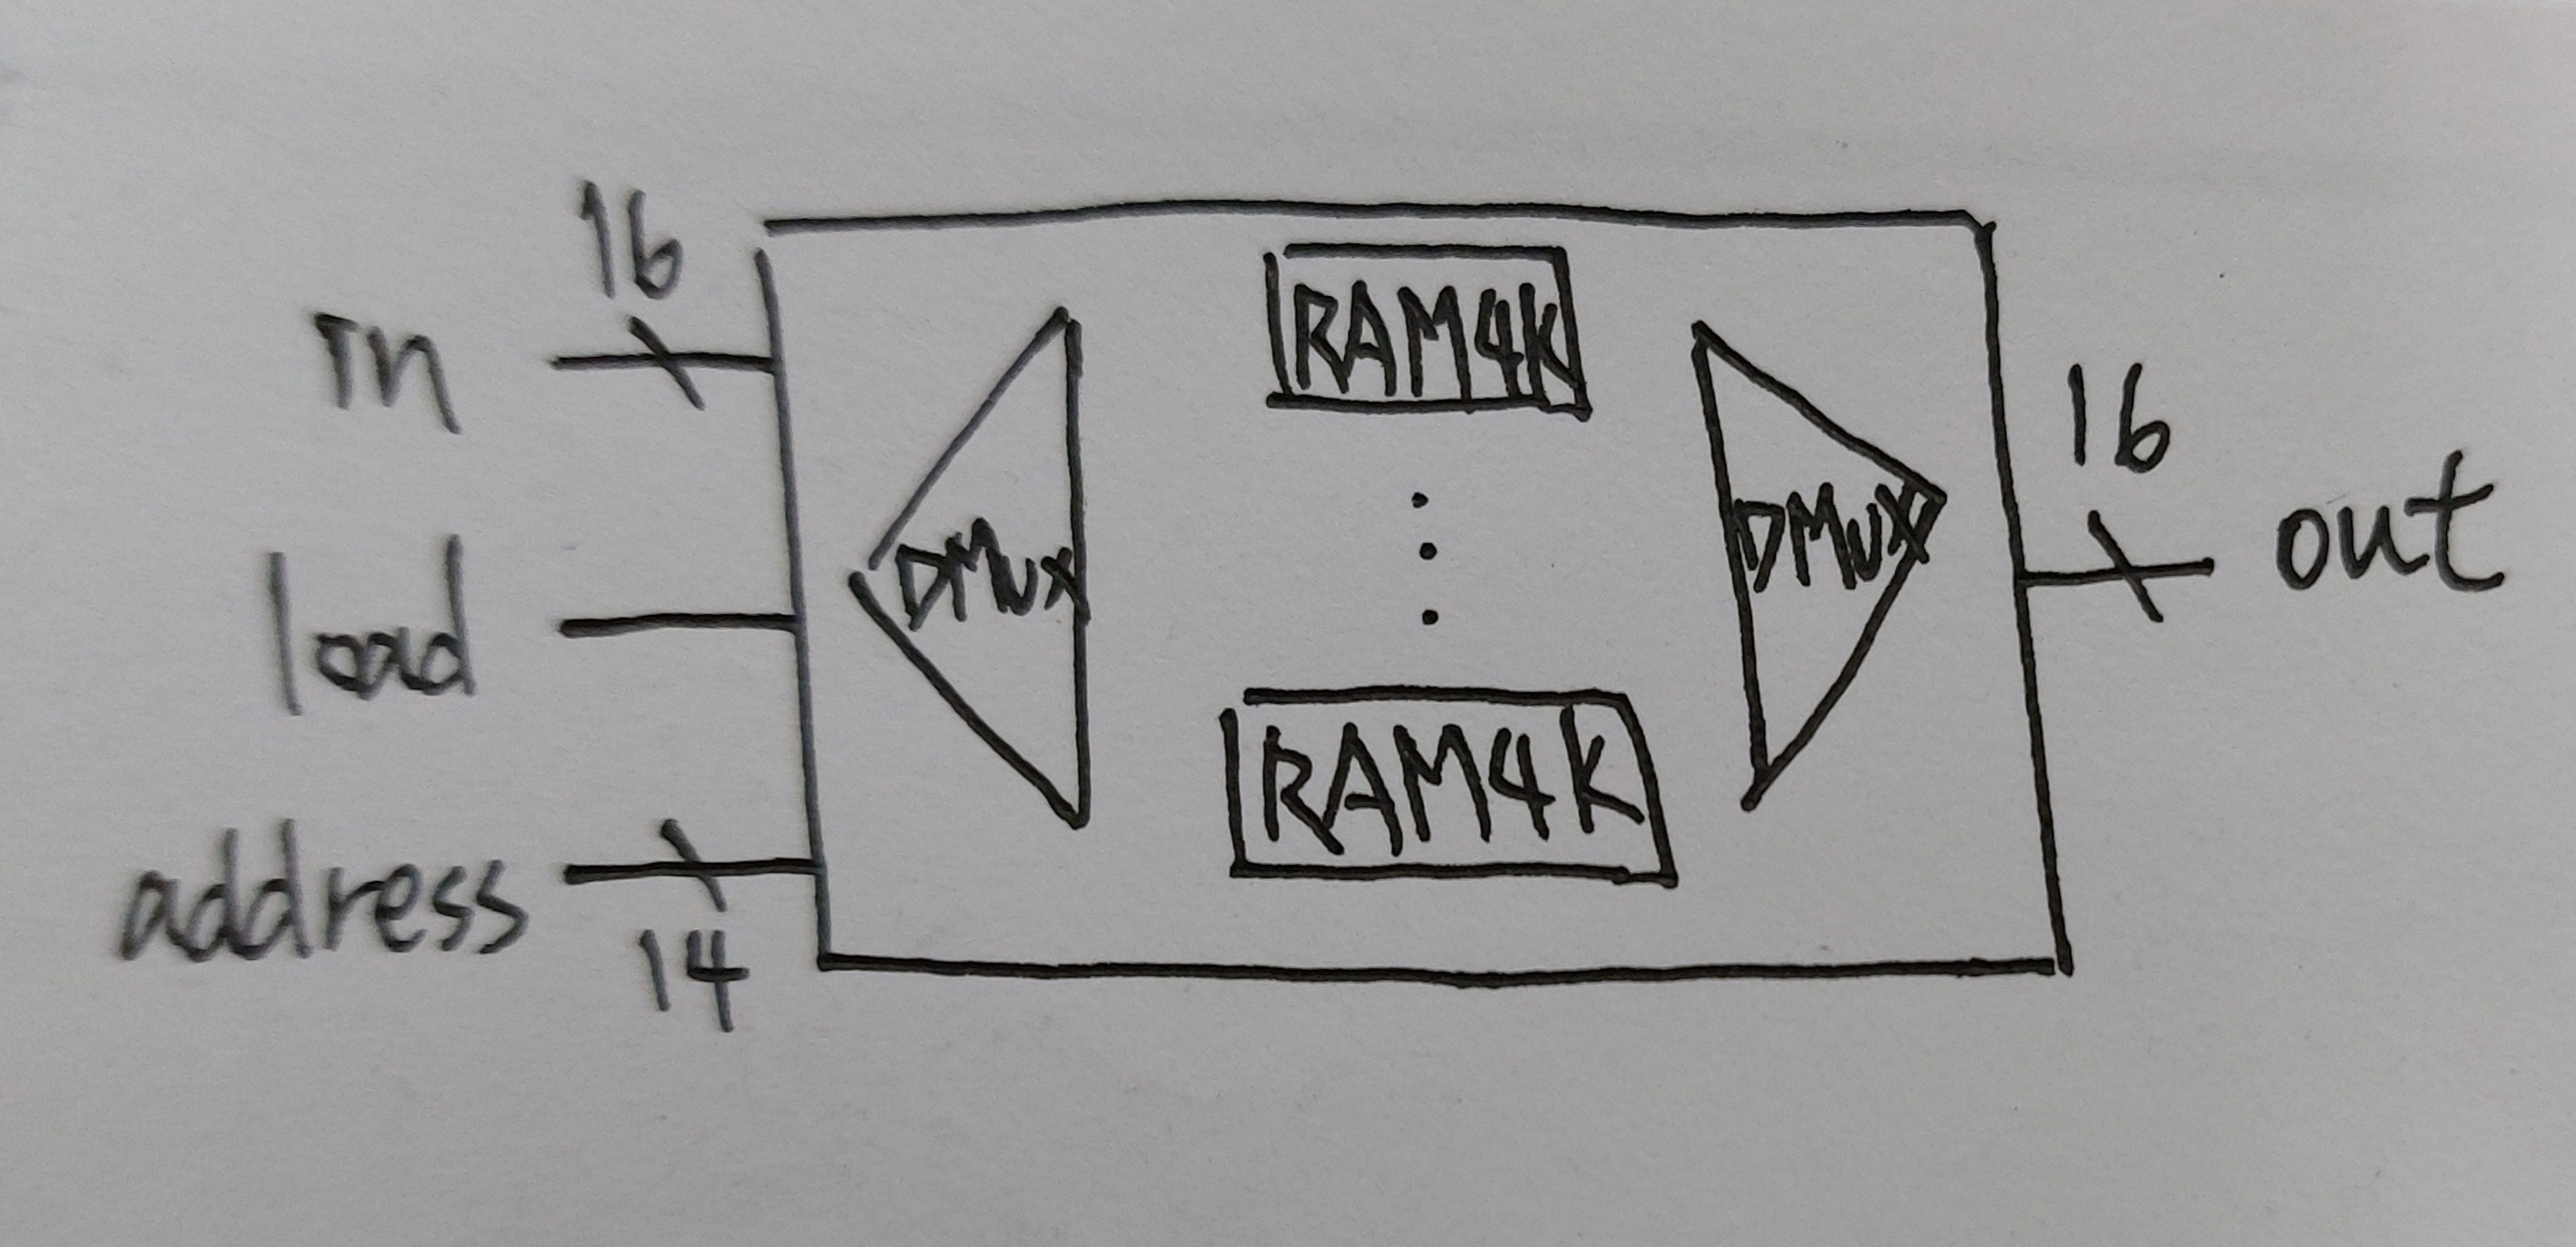 16
in
load
address
14
DMux
RAM4K
RAM4K
DMux
16
out